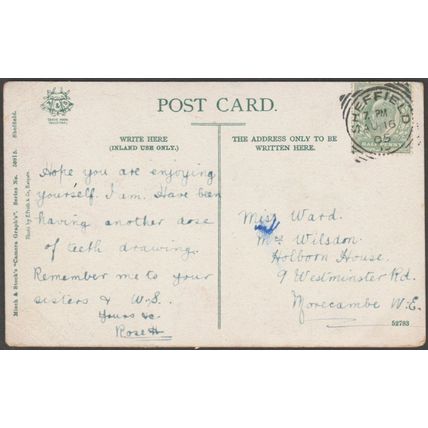 POST CARD.
WRITE HERE
(INLAND USE ONLY.)
THE ADDRESS ONLY TO BE
WRITTEN HERE.
SHEFFIELD
7. PM
AU 16
05
HALFPENNY
Hope you are enjoying
yourself. I am. Have been
having another dose
of teeth drawing.
Remember me to your
sisters & W.S.
Yours &c.
Rose H
Miss Ward.
Mrs Wilsdon.
Holborn House.
9 Westminster Rd.
Morecambe W.E.
52783
TRADE MARK